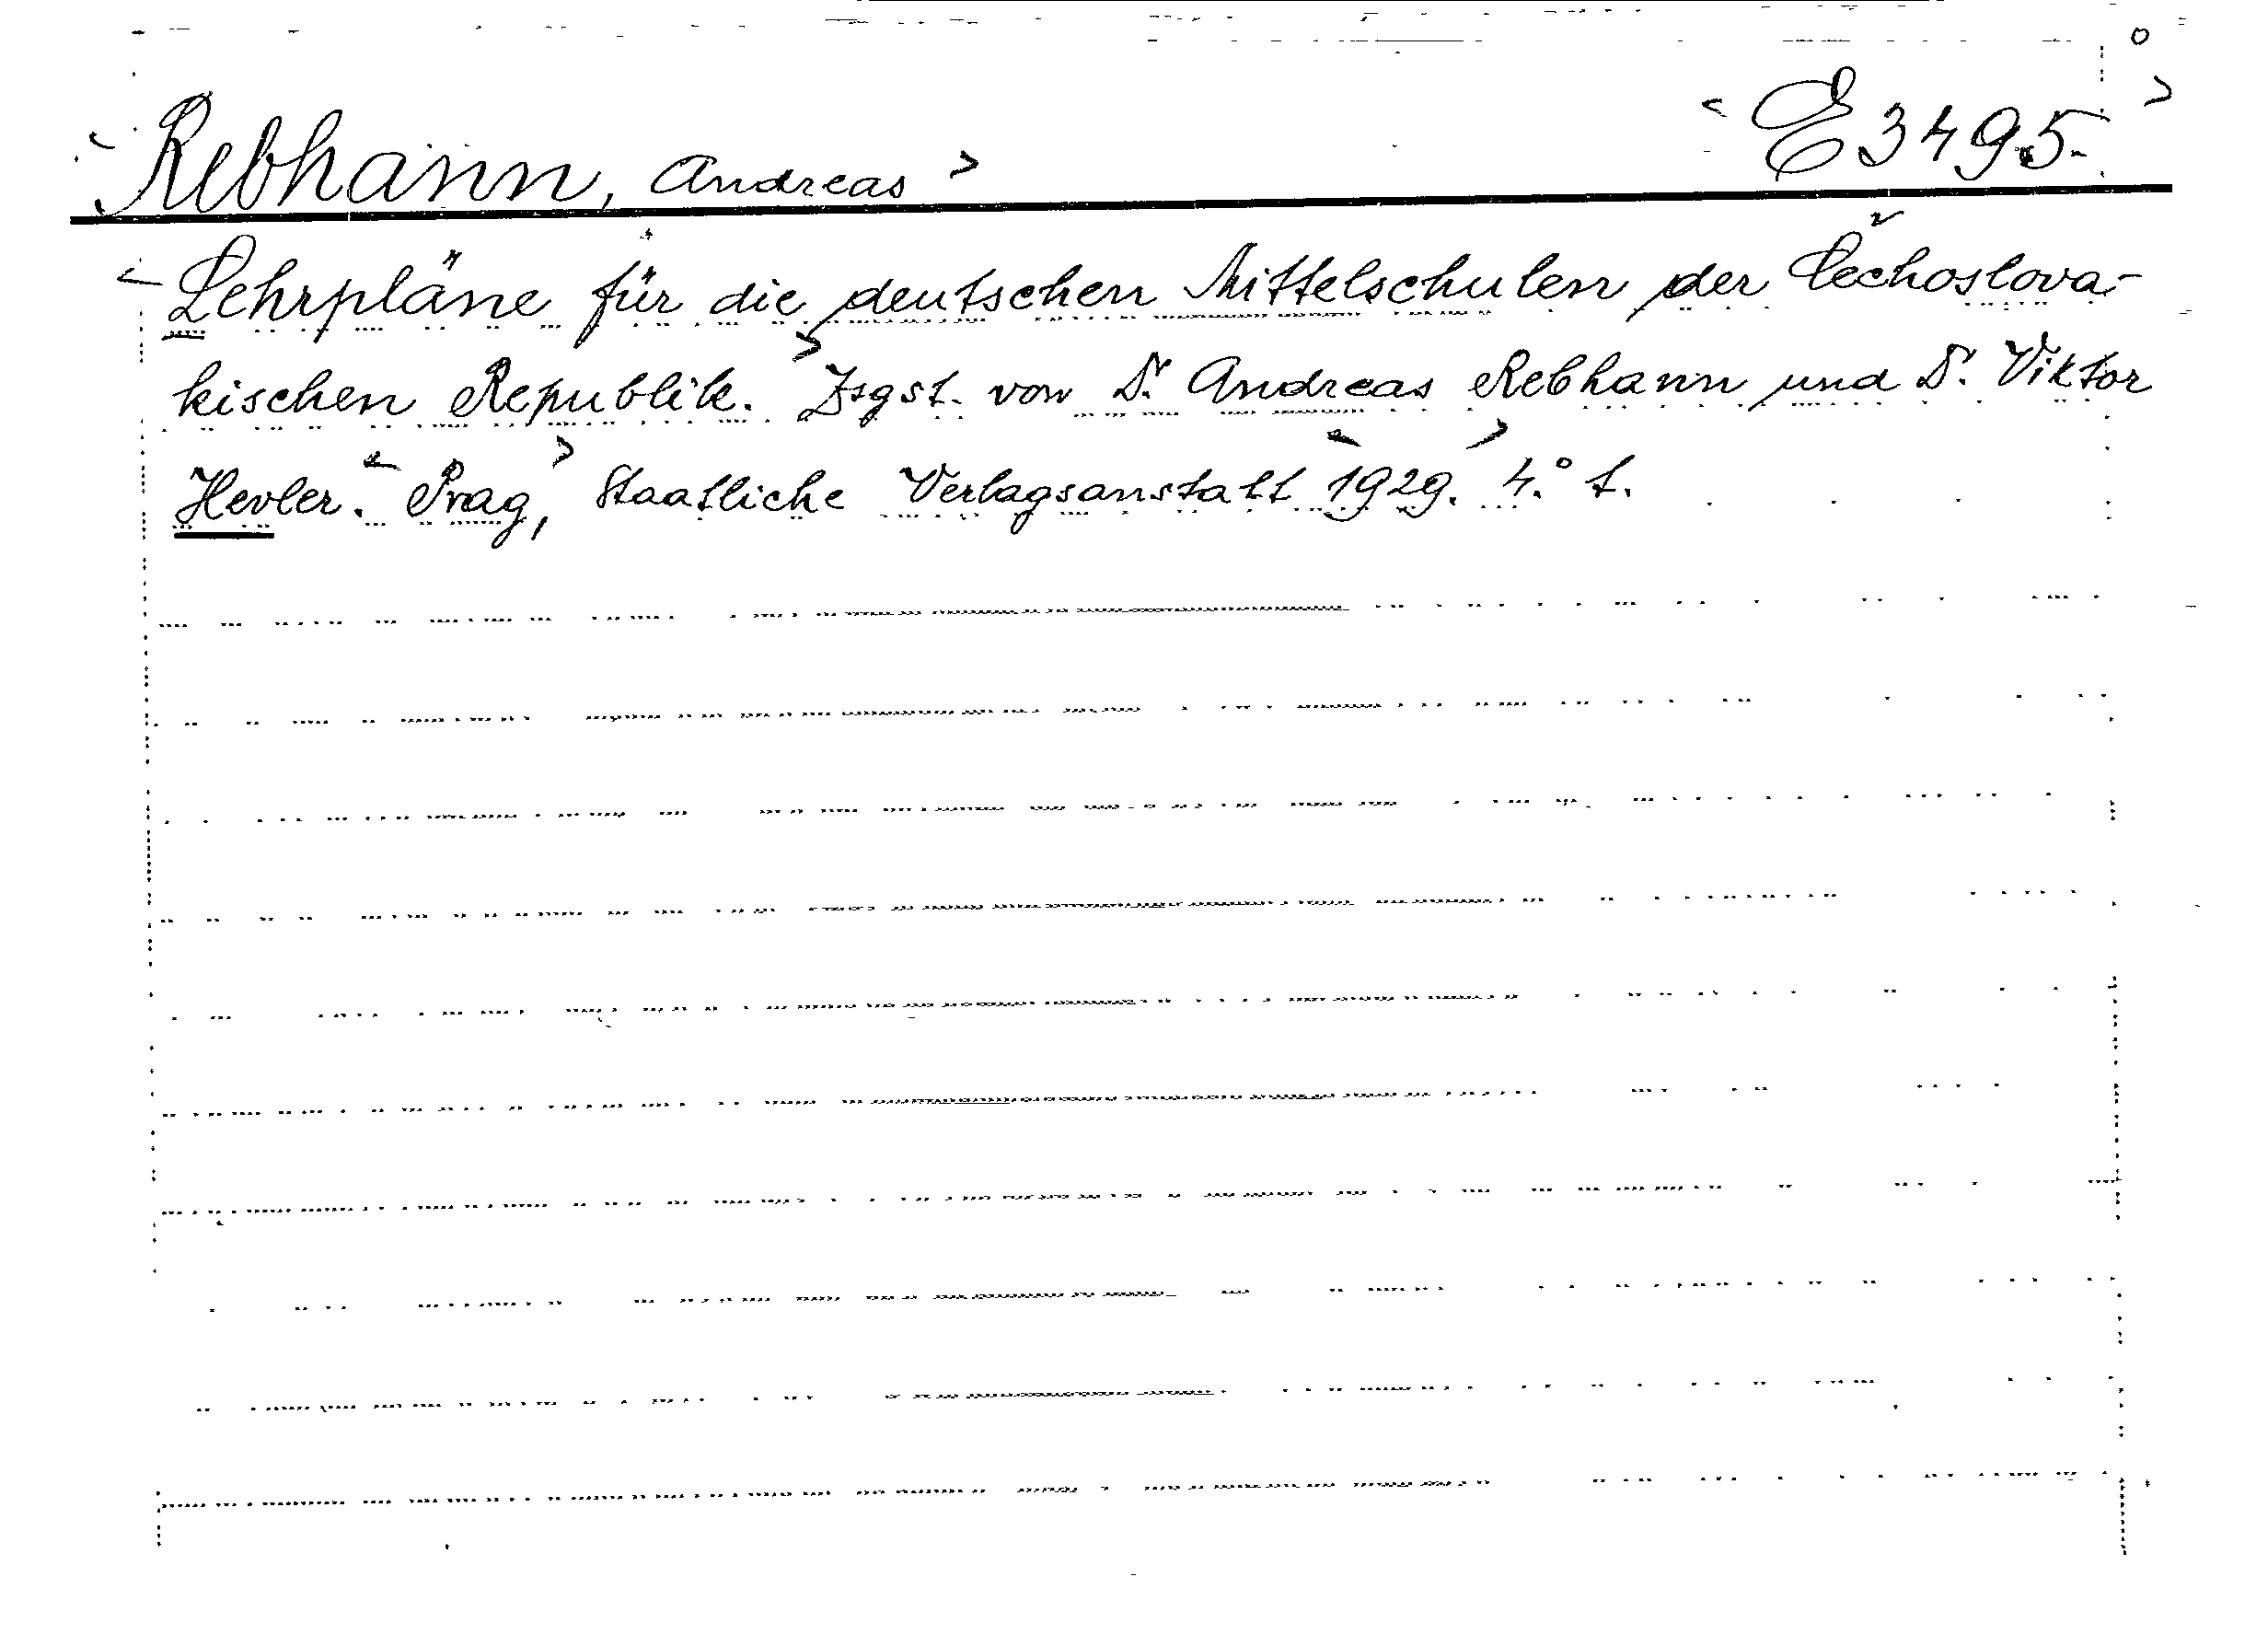 Rebhann, Andreas E 3495.
Lehrpläne für die deutschen Mittelschulen der Čechoslova-
kischen Republik. Zsgst. von Dr. Andreas Rebhann und Dr. Viktor
Hevler. Prag, Staatliche Verlagsanstalt 1929. 4.° t.